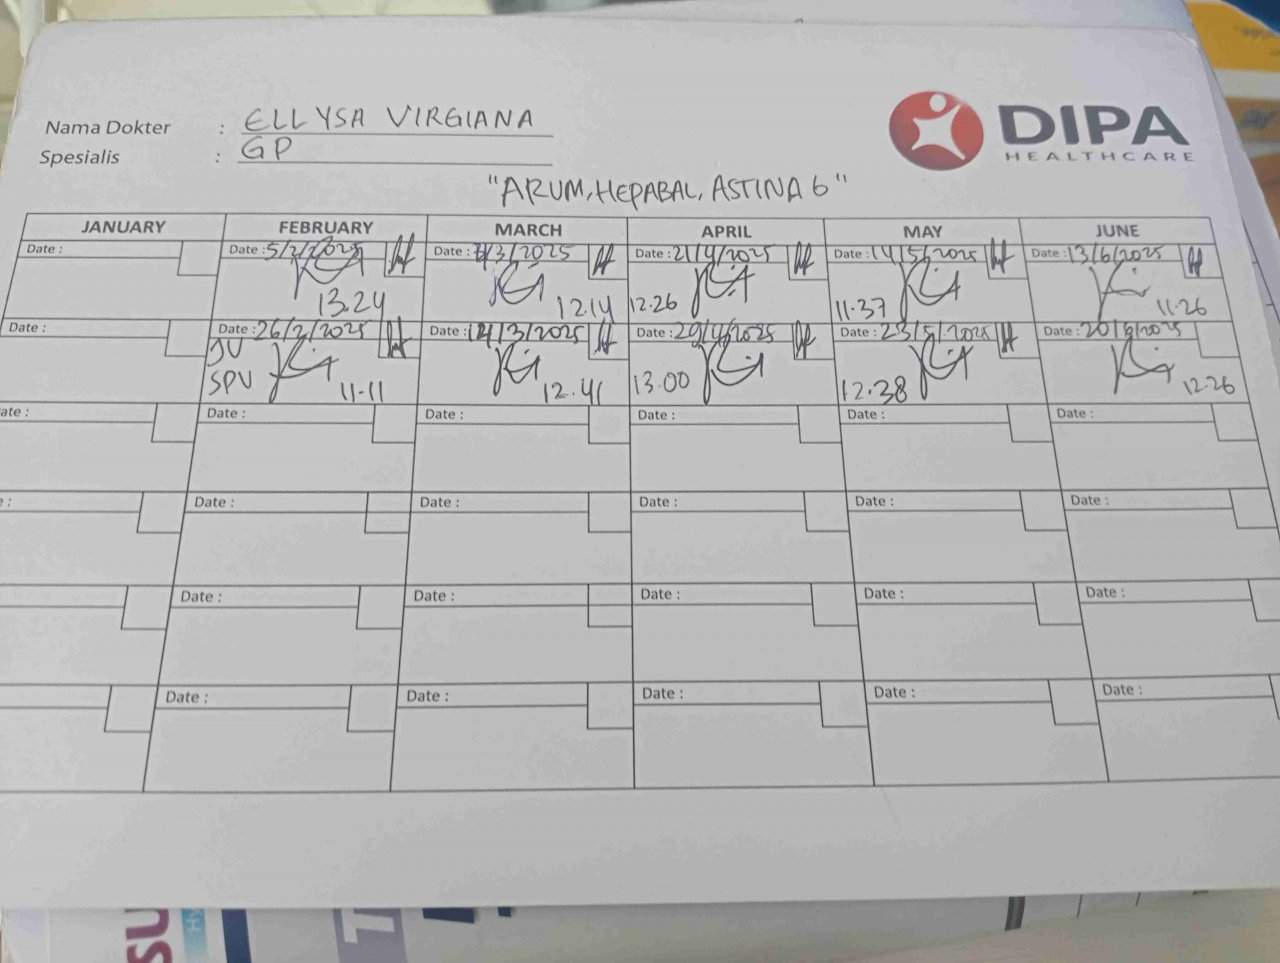 Nama Dokter : ELLYSA VIRGIANA
Spesialis : GP
DIPA
HEALTHCARE
"ARUM, HEPABAL, ASTINA 6"
JANUARY FEBRUARY MARCH APRIL MAY JUNE
Date : Date : 5/2/2025 Date : /3/2025 Date : 21/4/2025 Date : 14/5/2025 Date : 13/6/2025
13.24 12.14 12.26 11.37 11.26
Date : Date : 26/2/2025 Date : 14/3/2025 Date : 29/4/2025 Date : 23/5/2025 Date : 20/6/2025
JV
SPV 11.11 12.41 13.00 12.38 12.26
ate : Date : Date : Date : Date : Date :
e : Date : Date : Date : Date : Date :
Date : Date : Date : Date : Date :
Date : Date : Date : Date : Date :
SU